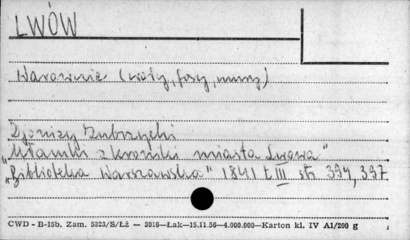 LWÓW
Warownie (wały, fosy, mury)
Djonizy Zubrzycki
„Ułamki z kroniki miasta Lwowa"
„Biblioteka Warszawska" 1841 t. III str. 394, 397
CWD - B-15b. Zam. 5823/S/Łż — 3016—Łak—15.11.56—4.000.000—Karton kl. IV A1/200 g